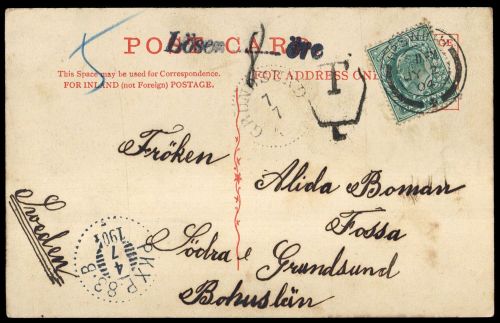 5
POST CARD.
Lösen öre
This Space may be used for Correspondence.
FOR INLAND (not Foreign) POSTAGE.
ADDRESS ONLY
T
GRUNDSUND
7
7
Fröken
Alida Boman
Fossa
Södra Grundsund
Bohuslän
Sweden
PKXP 83 B
4
7
190